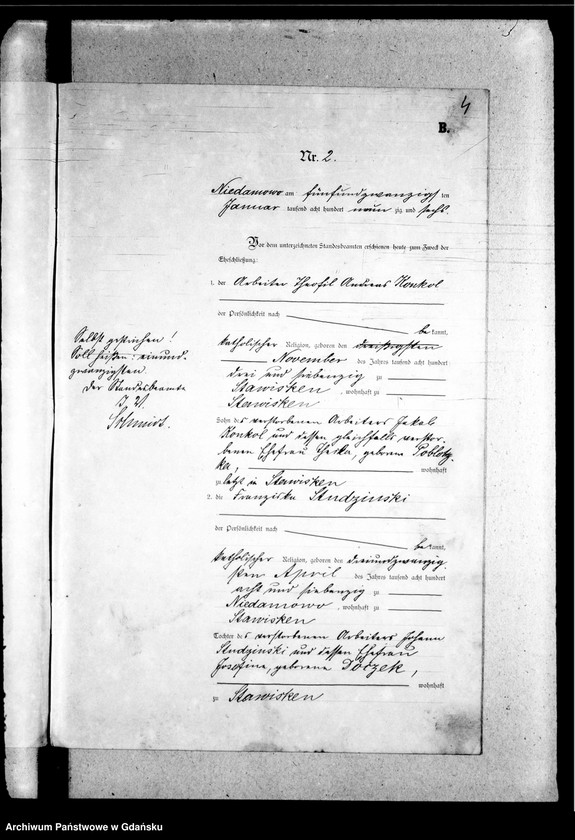 4
B.
Nr. 2.
Niedamowo am fünfundzwanzigs ten
Januar tausend acht hundert neun zig und sechs.
Vor dem unterzeichneten Standesbeamten erschienen heute zum Zweck der
Eheschließung:
1. der Arbeiter Theofil Andreas Konkol
der Persönlichkeit nach
be kannt,
katholischer Religion, geboren den dreißigsten
November des Jahres tausend acht hundert
drei und siebenzig zu
Stawisken, wohnhaft zu
Stawisken
Selbst gestrichen!
Soll heißen: einund-
zwanzigsten.
Der Standesbeamte
I. V.
Schmidt.
Sohn des verstorbenen Arbeiters Jakob
Konkol und dessen gleichfalls verstor-
benen Ehefrau Thekla, geborene Poblotz-
ka,
wohnhaft
zuletzt in Stawisken
2. die Franziska Studzinski
der Persönlichkeit nach
be kannt,
katholischer Religion, geboren den dreiundzwanzig-
sten April des Jahres tausend acht hundert
acht und siebenzig zu
Niedamowo, wohnhaft zu
Stawisken
Tochter des verstorbenen Arbeiters Johann
Studzinski und dessen Ehefrau
Josefine, geborene Dorzek,
wohnhaft
zu Stawisken
Archiwum Państwowe w Gdańsku